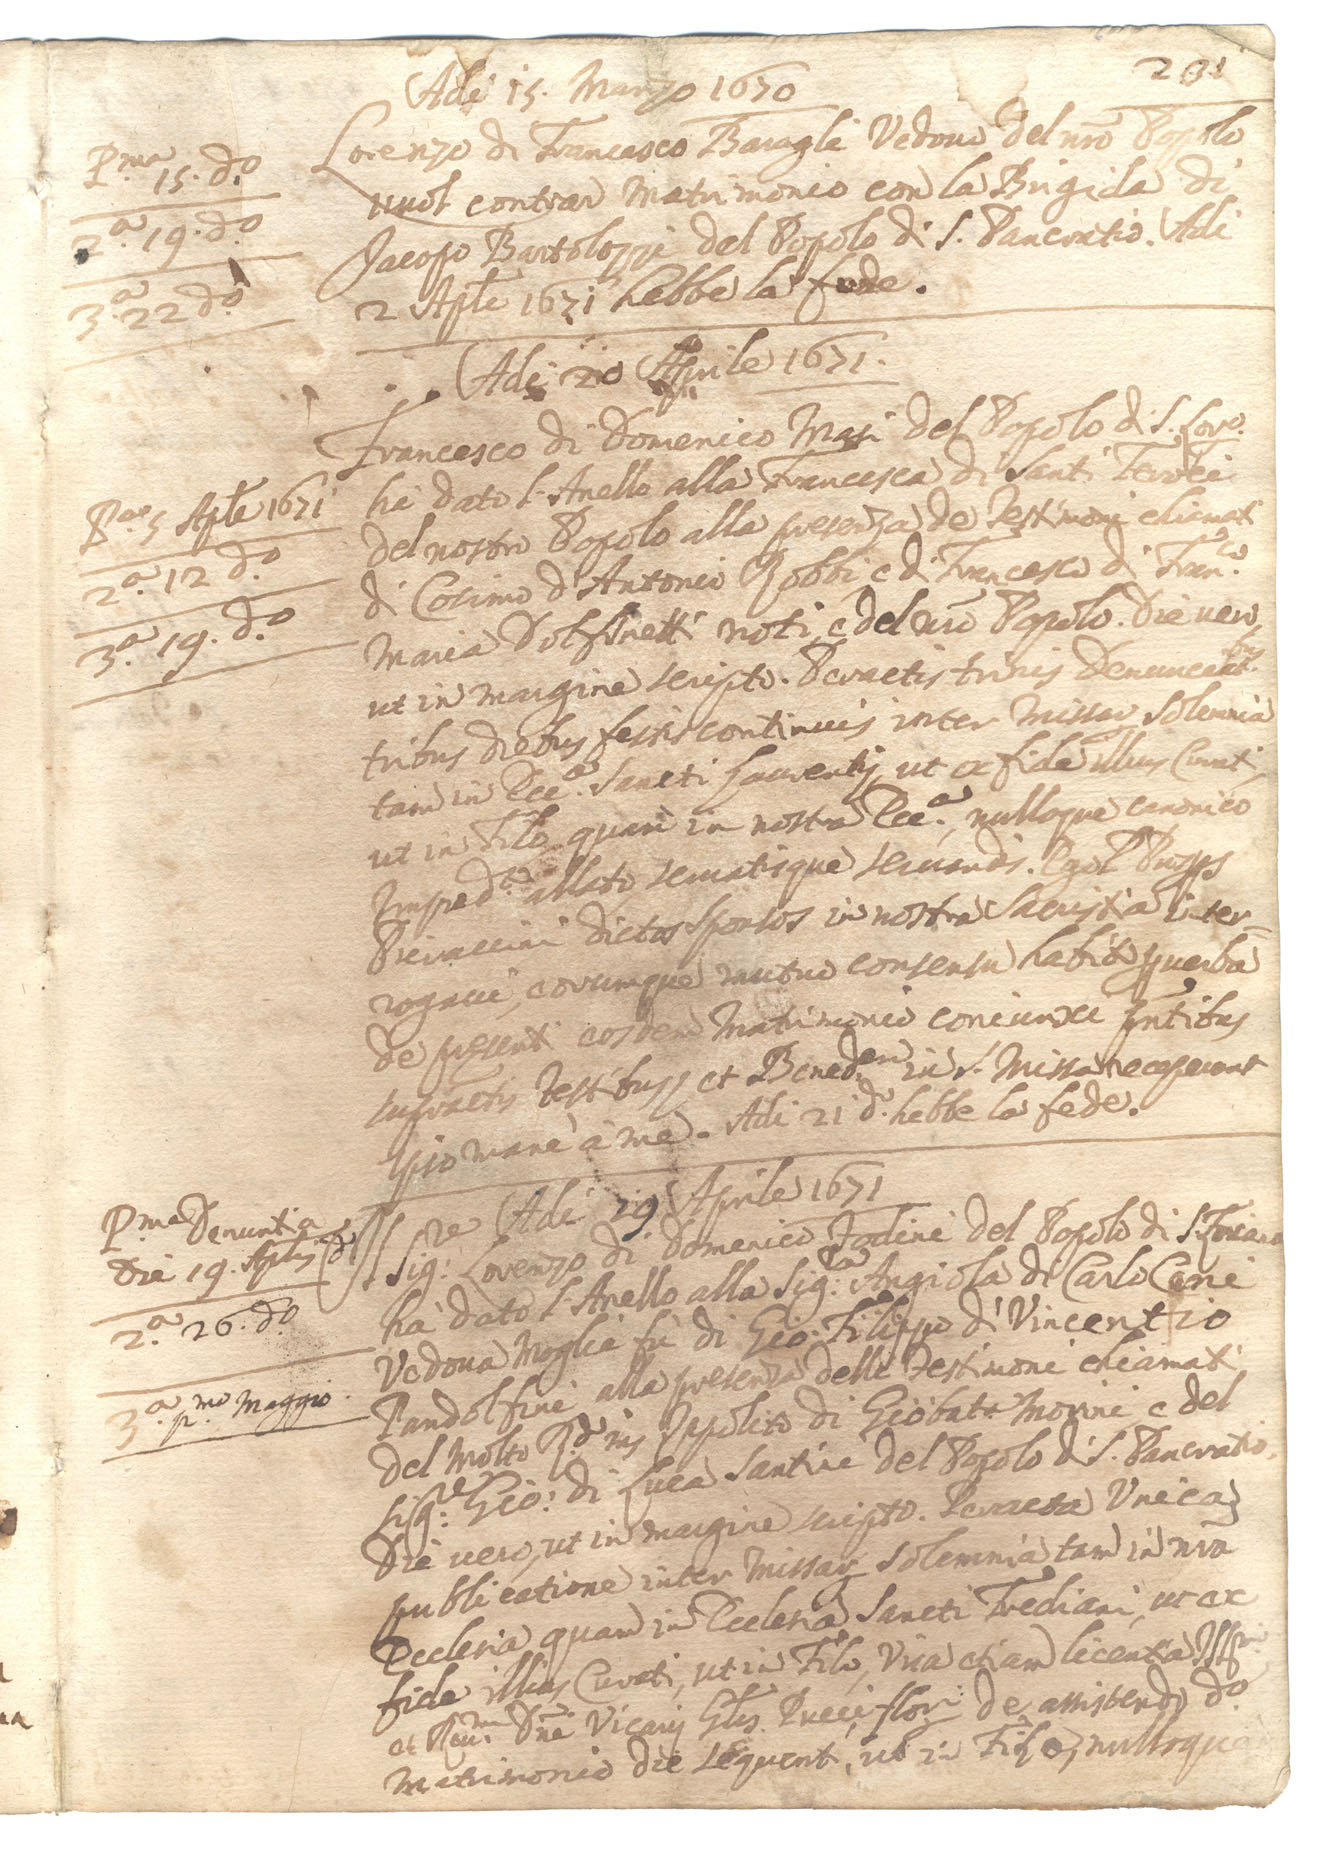 201
Adi 15. Marzo 1670
Lorenzo di Francesco Baragli Vedovo del nro Popolo
vuol contrar Matrimonio con la Brigida di
Jacopo Bartolozzi del Popolo di S. Pancratio. Adi
2 Aple 1671 hebbe la fede.
Pma 15. do
2a 19. do
3a 22 do
Adi 20 Aprile 1671.
Francesco di Domenico Masi del Popolo di S. Loro.
hà dato l'Anello alla Francesca di Santi
del nostro Popolo alla presenza de Testimoni chiamati
di Cosimo d'Antonio Gobbi, e di Francesco di Fran.co
Maria Dolfinetti noti, e del nro Popolo. Die vero,
ut in margine scripto. Peractis trinis Denunciat.bus
tribus diebus festis continuis inter Missar Solemnia
tam in Ecc.a Sancti Laurentij, ut ex fide illius Curati,
ut in Filo, quam in nostra Ecc.a, nulloque canonico
Imped.to allato servatisque servandis. Ego
Pieraccini dictos sponsos in nostra Sacristia inter=
rogavi, eorumque mutuo consensu habito p verba
de presenti eosdem Matrimonio coniunxi pntibus
supractis Testibus, et Bened.em in S. Missa receperunt
ipso mane à me. Adi 21 do. hebbe la fede.
Pa 5 Aple 1671
2.a 12 do.
3.a 19. do.
Adi 29 Aprile 1671
Il Sig.re Lorenzo di Domenico Fodini del Popolo di S. Friano
hà dato l'Anello alla Sig.ra Angiola di Carlo Cini
Vedova Moglie fù di Gio: Filippo di Vincentio
Pandolfini alla presenza delli Testimoni chiamati
del Molto R.do Ipolito di Giobat.a Morini e del
Sig.re Gio: di Luca Santini del Popolo di S. Pancratio.
Die vero, ut in margine scripto. Peracta Unica
publicatione inter Missar Solemnia tam in nra
Ecclesia, quam in Ecclesia Sancti Frediani, ut ex
fide illius Curati, ut in Filo, Una etiam licentia Ill.mi
et Reu.mi Dni Vicarij Glis. de assistendo do.
Matrimonio die sequenti, ut in Filo, nulloque
P.ma Denuntia
Die 19. Aplis
2.a 26. do
3.a p.mo Maggio.